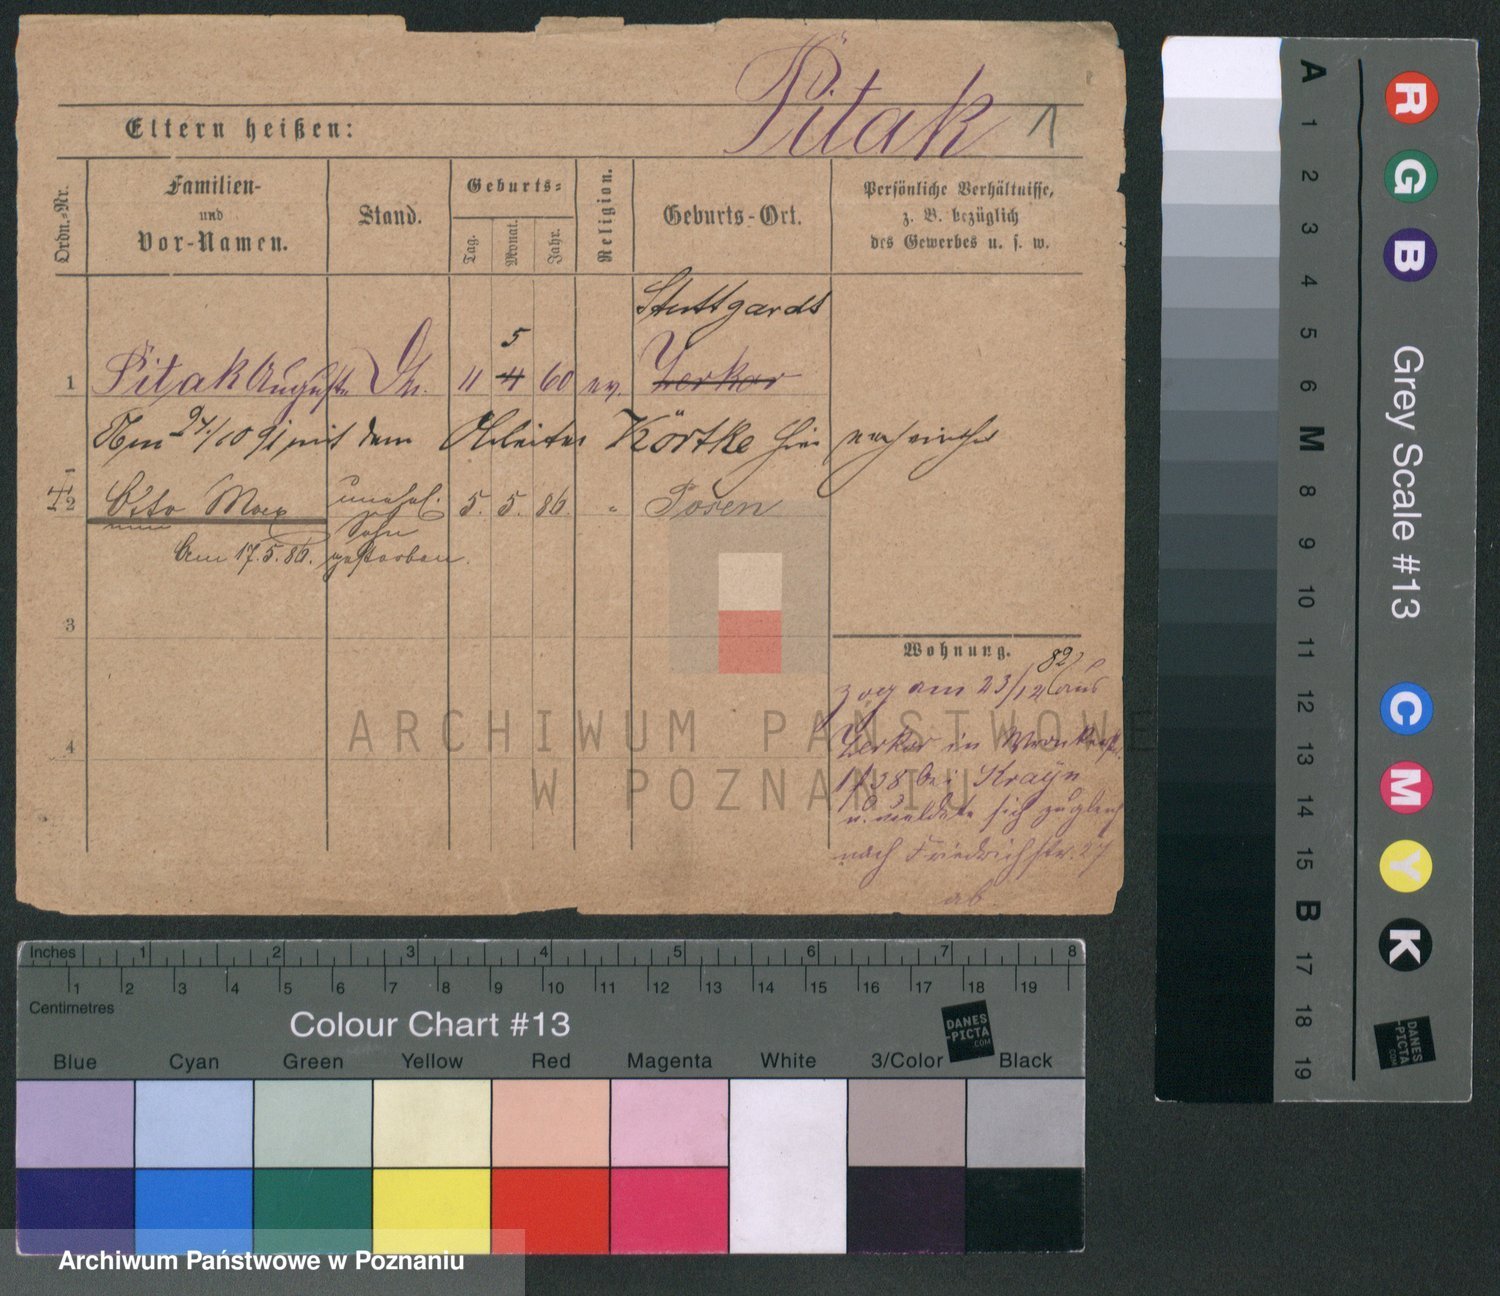 Pitak 1
Eltern heißen:
Ordn.-Nr.
Familien-
und
Vor-Namen.
Stand.
Geburts-
Tag.
Monat.
Jahr.
Religion.
Geburts-Ort.
Persönliche Verhältnisse,
z. B. bezüglich
des Gewerbes u. s. w.
Stuttgardt
5
1 Pitak Auguste 11 4 60 ev. Zerkow
Am 24/10 91 mit dem Arbeiter Körtke hier
2 Otto Max unehel. 5. 5. 86. " Posen
Sohn
Am 17.5.86. gestorben.
3
Wohnung.
82
zog am 23/12 aus
4
Zerkow in
bei Krayn
u. meldete sich zugleich
nach Friedrichstr. 27
ab
ARCHIWUM PAŃSTWOWE
W POZNANIU
Inches 1 2 3 4 5 6 7 8
1 2 3 4 5 6 7 8 9 10 11 12 13 14 15 16 17 18 19
Centimetres
Colour Chart #13
DANES
-PICTA
.COM
Blue Cyan Green Yellow Red Magenta White 3/Color Black
Archiwum Państwowe w Poznaniu
A 1 2 3 4 5 6 M 8 9 10 11 12 13 14 15 B 17 18 19
R G B
Grey Scale #13
C M Y K
DANES
-PICTA
.COM